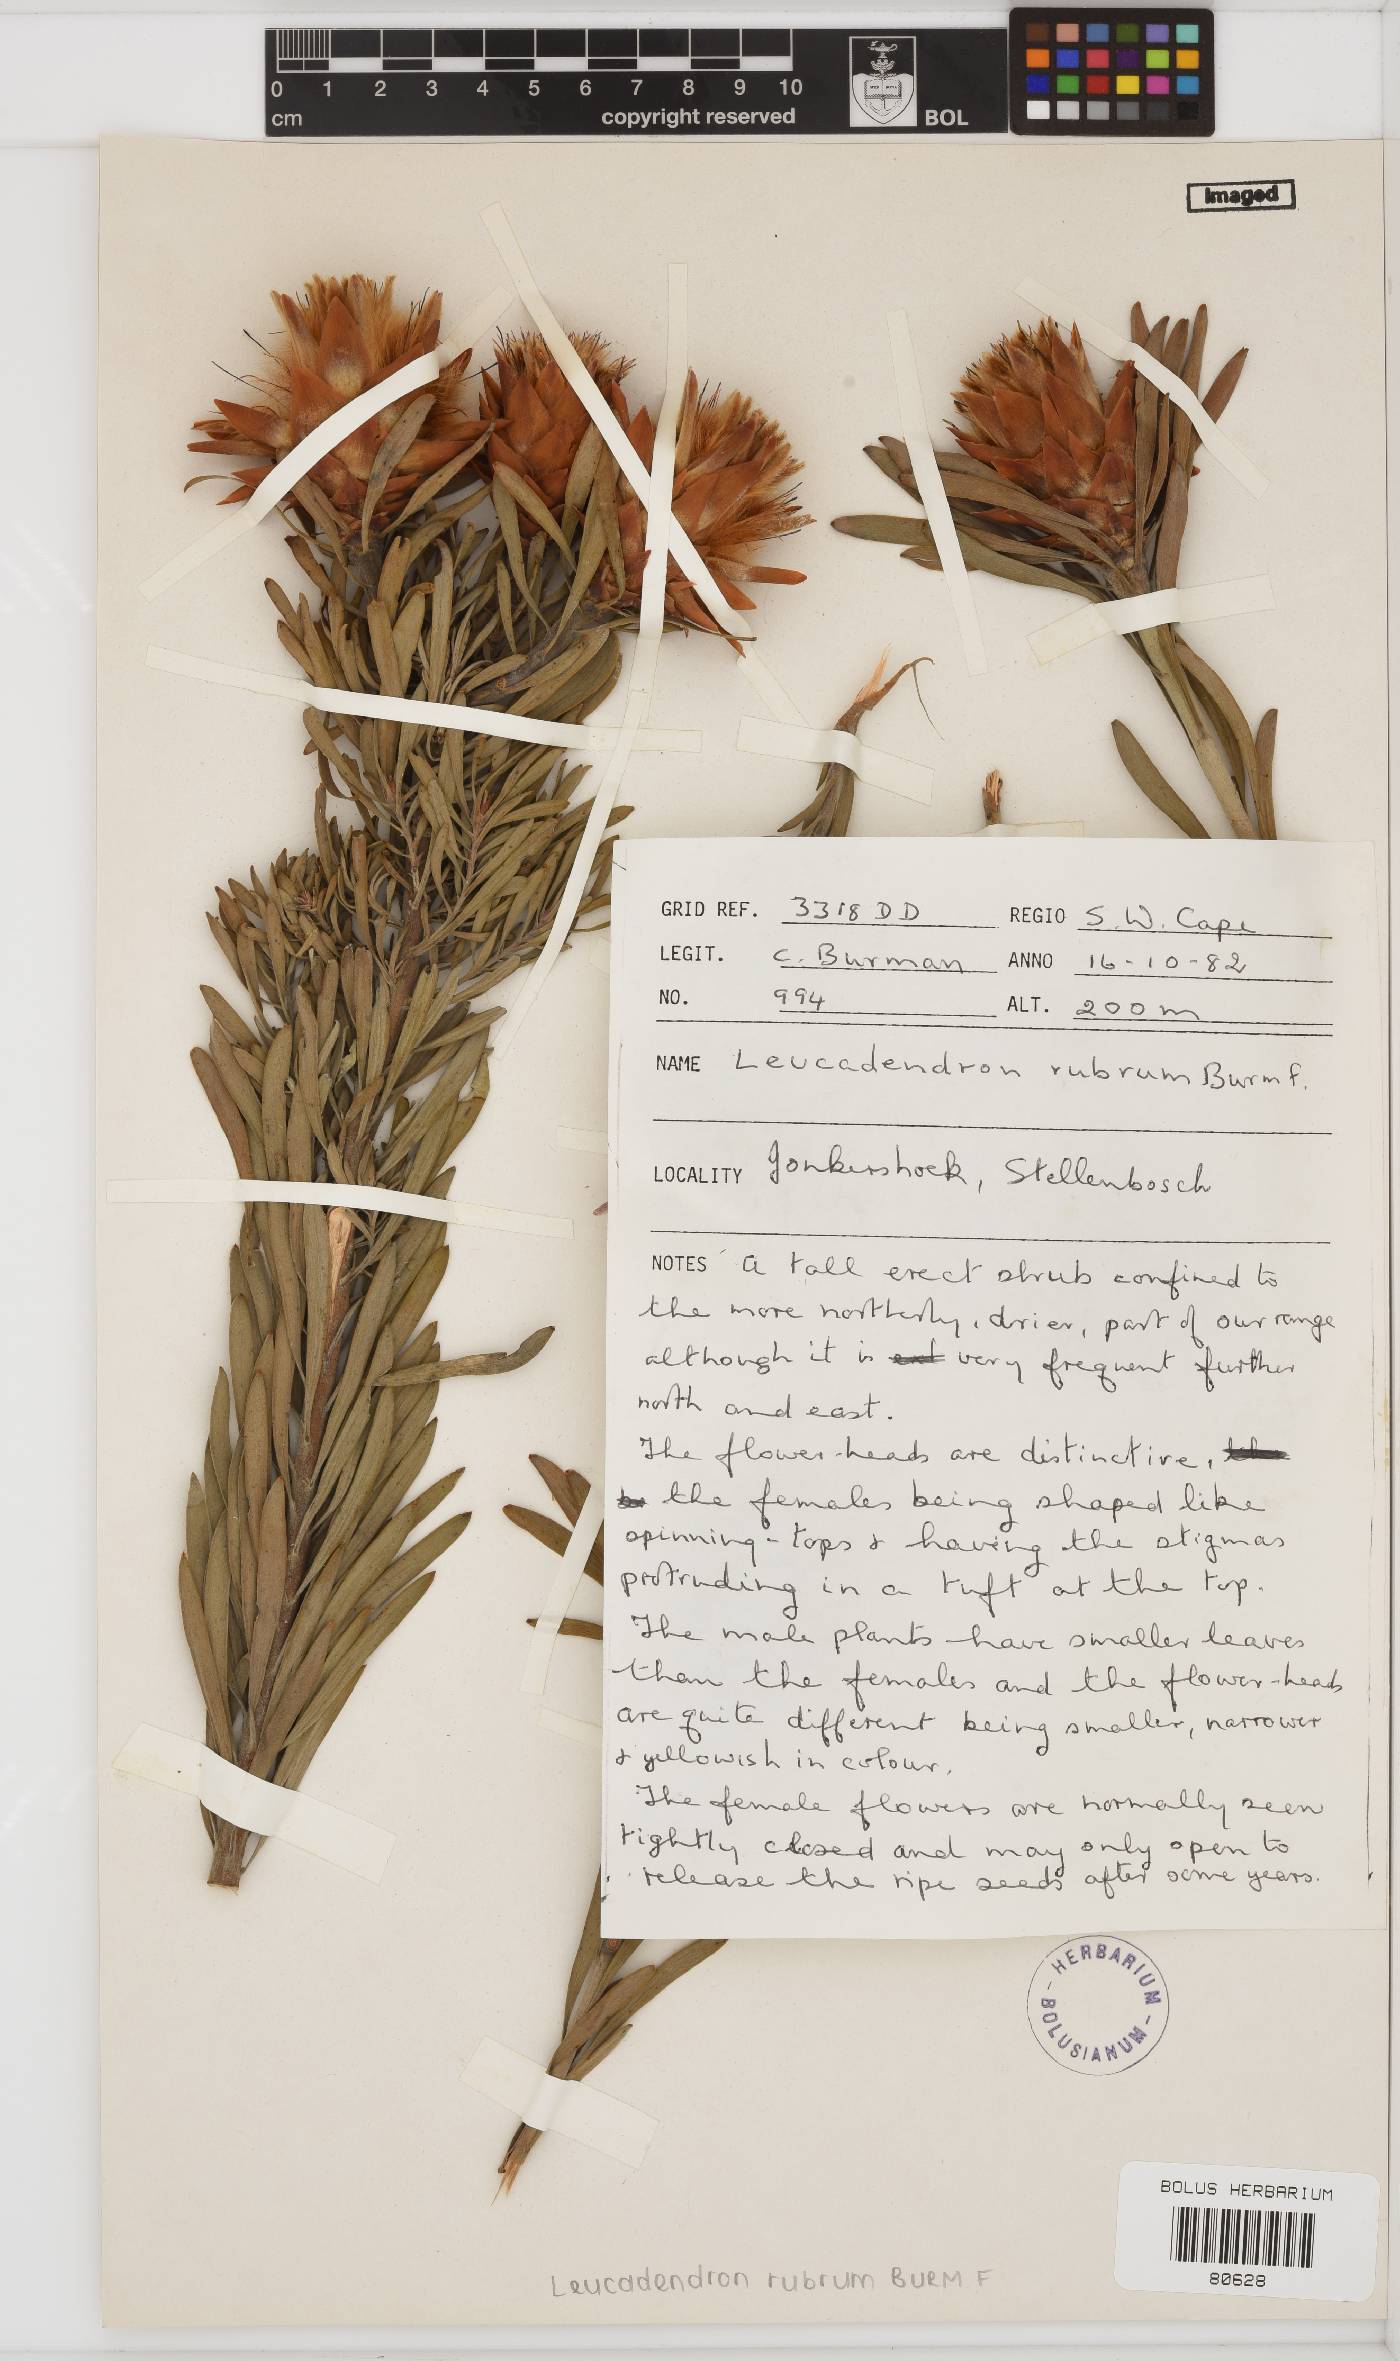 0 1 2 3 4 5 6 7 8 9 10
cm copyright reserved BOL
Imaged
GRID REF. 3318 DD REGIO S.W. Cape
LEGIT. C. Burman ANNO 16-10-82
NO. 994 ALT. 200m
NAME Leucadendron rubrum Burm f.
LOCALITY Jonkershoek, Stellenbosch
NOTES A tall erect shrub confined to
the more northerly, drier, part of our range
although it is very frequent further
north and east.
The flower-heads are distinctive,
the females being shaped like
spinning-tops & having the stigmas
protruding in a tuft at the top.
The male plants have smaller leaves
than the females and the flower-heads
are quite different being smaller, narrower
& yellowish in colour.
The female flowers are normally seen
tightly closed and may only open to
release the ripe seeds after some years.
HERBARIUM
BOLUSIANUM
BOLUS HERBARIUM
80628
Leucadendron rubrum BURM F